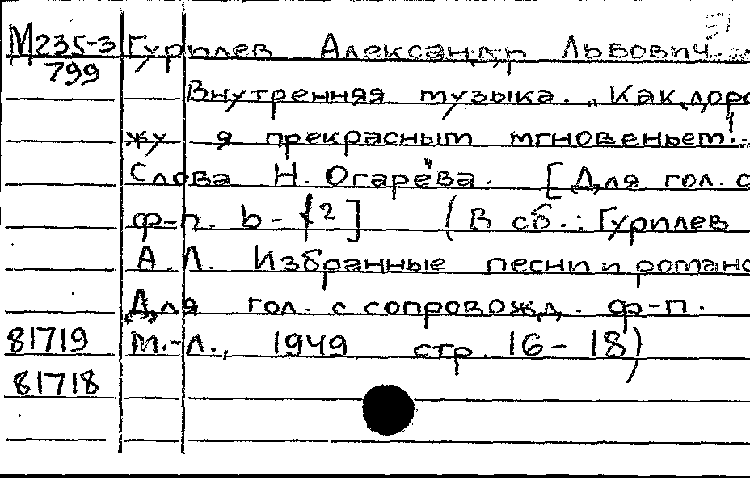 М235-3 Гурилев Александр Львович.
799
Внутренняя музыка. „Как доро
жу я прекрасным мгновеньем!..
Слова Н. Огарёва. [Для гол. с
ф-п. b-f²] (В сб.: Гурилев
А.Л. Избранные песни и романс
Для гол. с сопровожд. ф-п.
81719 М.-Л., 1949 стр. 16-18)
81718